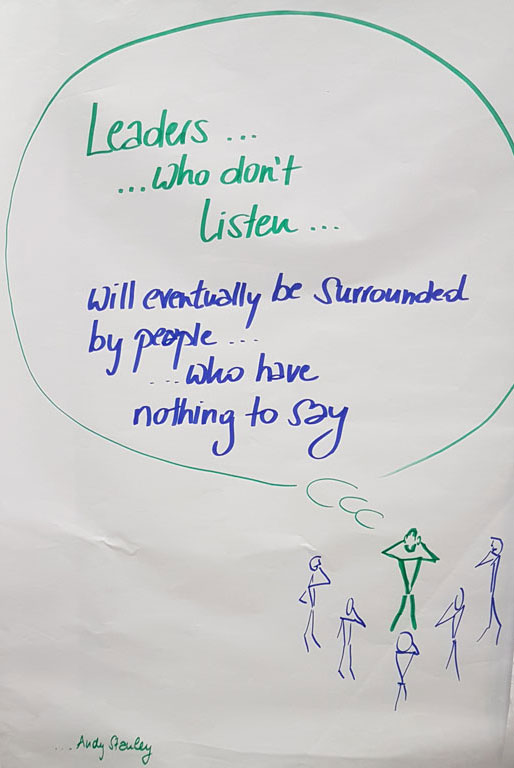 Leaders ...
...who don't
Listen ...
will eventually be surrounded
by people ...
...who have
nothing to say
...Andy Stanley